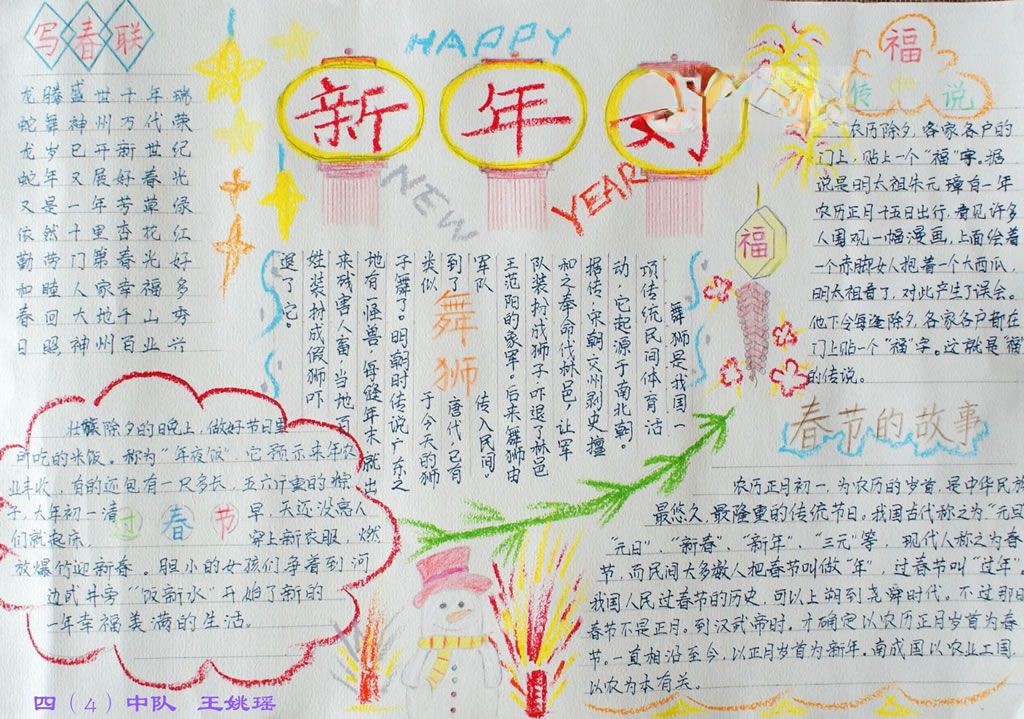 写春联
龙腾盛世千年瑞
蛇舞神州万代荣
龙岁已开新世纪
蛇年又展好春光
又是一年芳草绿
依然十里杏花红
勤劳门第春光好
和睦人家幸福多
春回大地千山秀
日照神州百业兴
HAPPY
新年好
NEW
YEAR
福
传说
农历除夕，各家各户的
门上，贴上一个“福”字。据
说是明太祖朱元璋自一年
农历正月十五日出行，看见许多
人围观一幅漫画，上面绘着
一个赤脚女人抱着一个大西瓜，
明太祖看了，对此产生了误会。
他下令每逢除夕，各家各户都在
门上贴一个“福”字。这就是“福”
的传说。
福
舞狮
舞狮是我国一
项传统民间体育活
动，它起源于南北朝。
据传，宋朝交州剥史擅
和之奉命代林邑，让军
队装扮成狮子吓退了林邑
王范阳的象军。后来舞狮由
军队传入民间。
到了唐代已有
类似于今天的狮
子舞了。明朝时传说广东之
地有一怪兽，每缝年末就出
来残害人畜，当地百
姓装扮成假狮吓
退了它。
过春节
壮族除夕的日晚上，做好节日里
所吃的米饭。称为“年夜饭”，它预示来年农
业丰收，有的还包有一尺多长，五六斤重的粽
子，大年初一清早，天还没亮人
们就起床，穿上新衣服，燃
放爆竹迎新春。胆小的女孩们争着到河
边或井旁“饭新水”开始了新的
一年幸福美满的生活。
春节的故事
农历正月初一，为农历的岁首，是中华民族
最悠久，最隆重的传统节日。我国古代称之为“元旦
“元日”、“新春”、“新年”、“三元”等，现代人称之为春
节，而民间大多数人把春节叫做“年”，过春节叫“过年”。
我国人民过春节的历史，可以上溯到尧舜时代。不过那日
春节不是正月。到汉武帝时，才确定以农历正月岁首为春
节。一直相沿至今，以正月岁首为新年。南成国以农业工国，
以农为本有关。
四（4）中队 王姚瑶